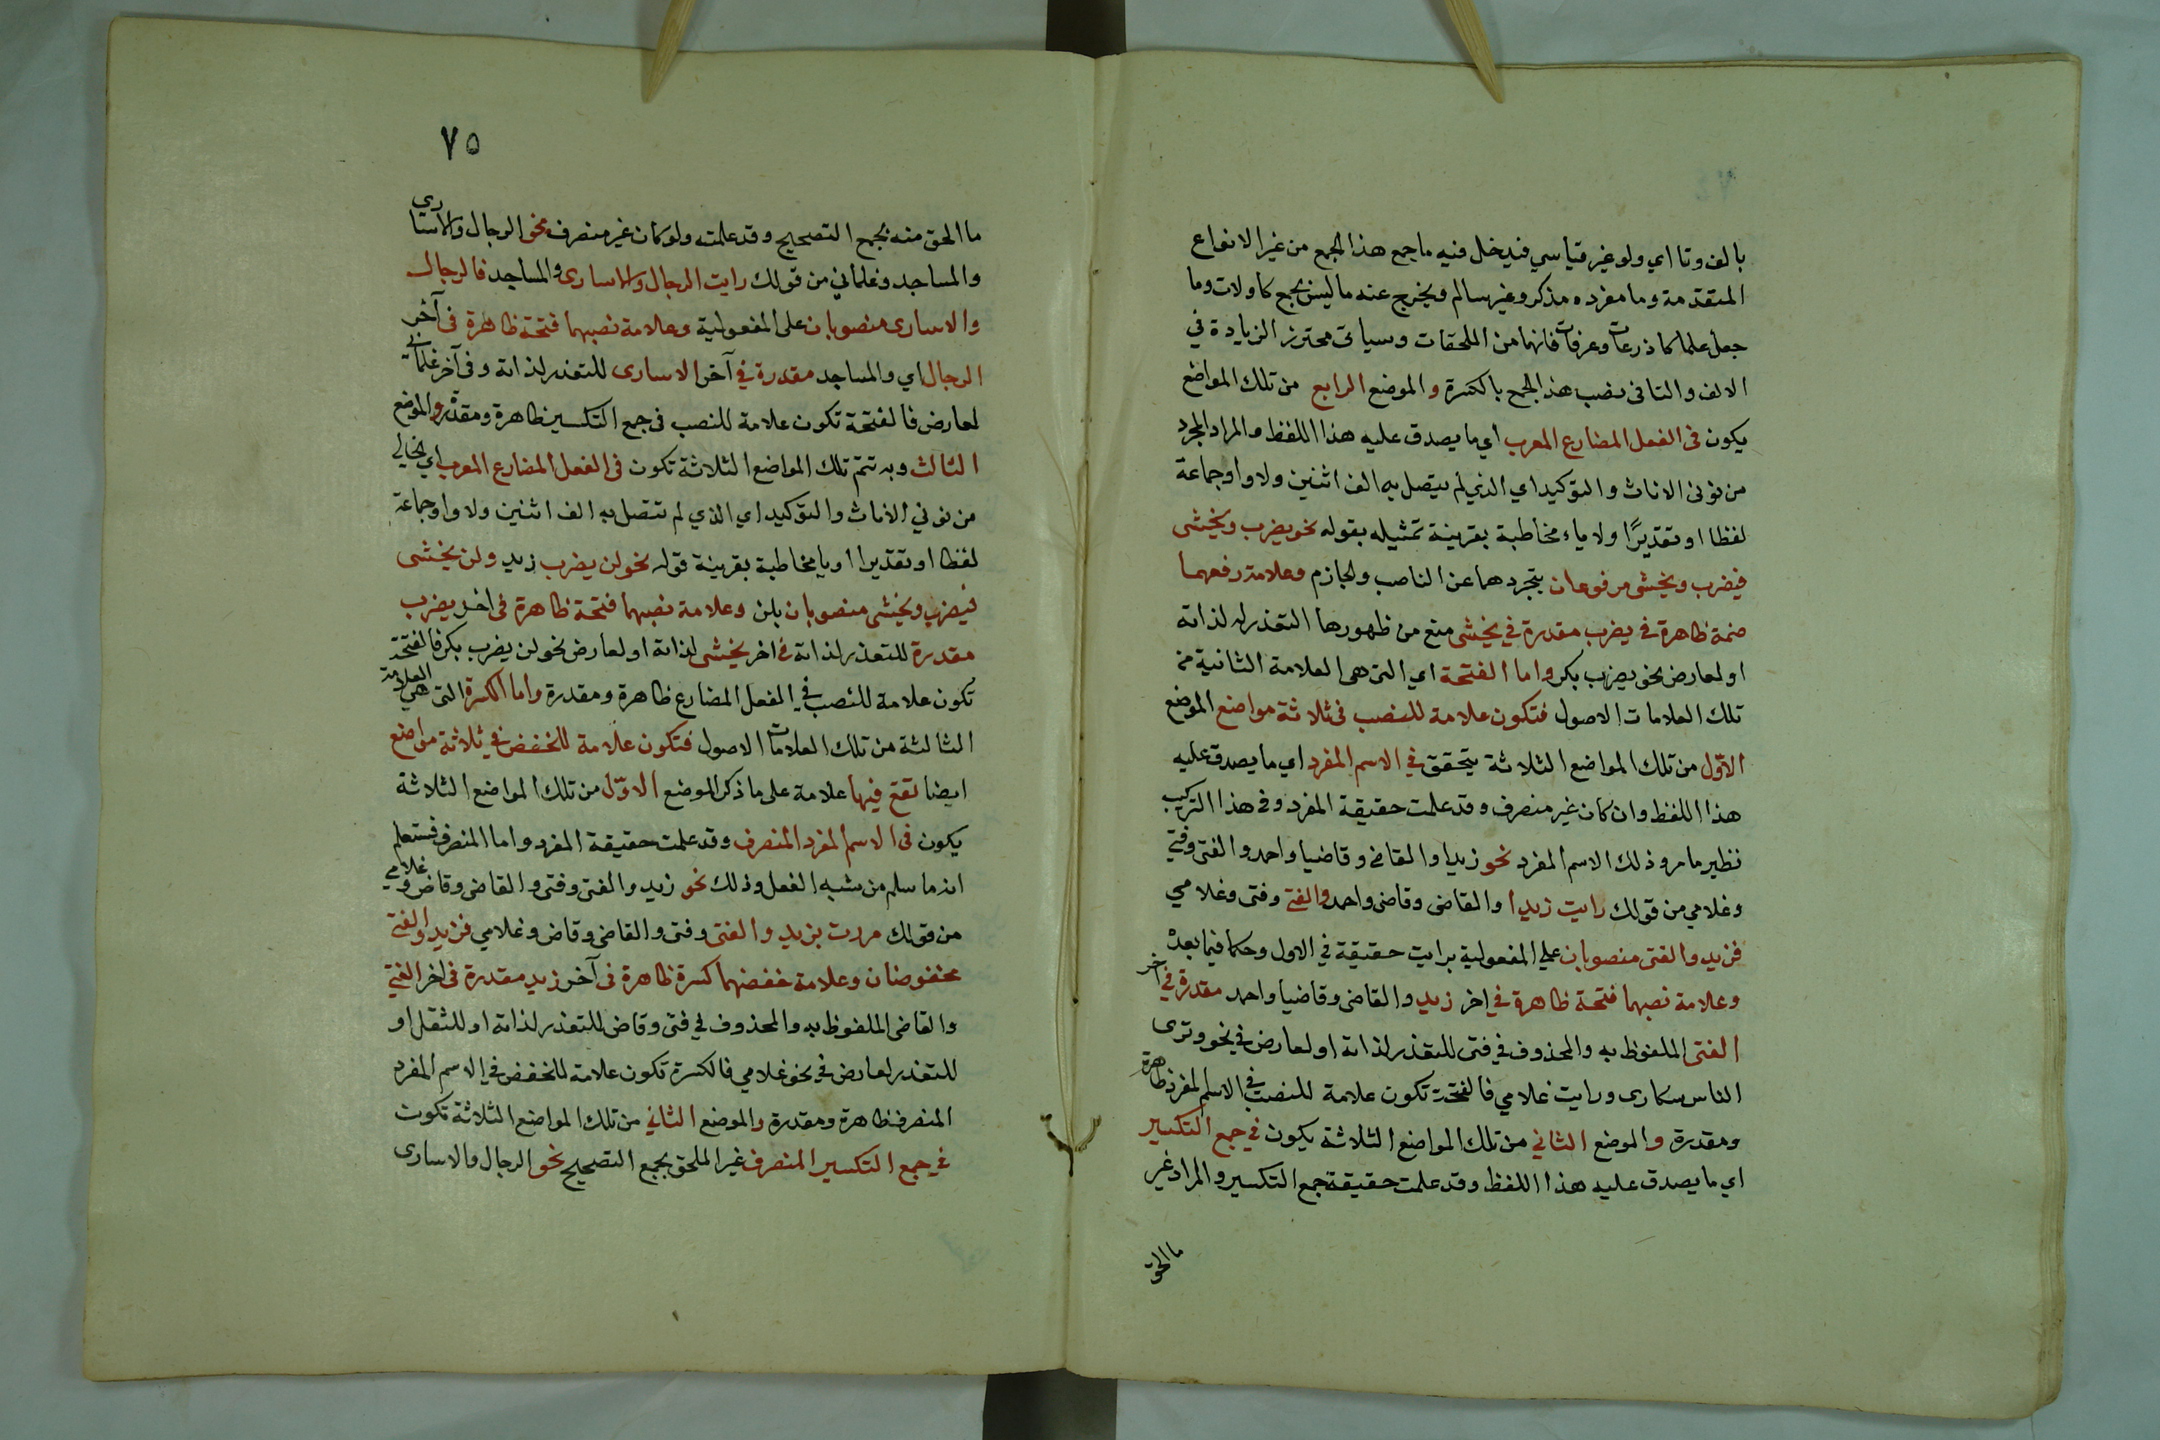 بالف وتا اي ولو غير قياسي فيدخل فيه ما جمع هذا الجمع من غير الانواع
المتقدمة وما مفرده مذكر وغير سالم ويخرج عنه ما ليس بجمع كاولات وما
جعل علما كاذرعات وعرفات فانهما من الملحقات وسيأتى محترز الزيادة في
الالف والتا فى نصب هذا الجمع بالكسرة والموضع الرابع من تلك المواضع
يكون فى الفعل المضارع المعرب اي ما يصدق عليه هذا اللفظ والمراد المجرد
من نونى الاناث والتوكيد اي الذي لم يتصل به الف اثنين ولا واو جماعة
لفظا او تقديرًا ولا ياء مخاطبة بقرينة تمثيله بقوله نحو يضرب ويخشى
فيضرب ويخشى مرفوعان بتجردهما عن الناصب والجازم وعلامة رفعهما
ضمة ظاهرة فى يضرب مقدرة في يخشى منع من ظهورها التعذر لذاته
او لعارض نحو يضرب بكر واما الفتحة اي التى هى العلامة الثانية من
تلك العلامات الاصول فتكون علامة للنصب فى ثلاثة مواضع الموضع
الاوّل من تلك المواضع الثلاثة يتحقق في الاسم المفرد اي ما يصدق عليه
هذا اللفظ وان كان غير منصرف وقد علمت حقيقة المفرد وفى هذا التركيب
نظير ما مر وذلك الاسم المفرد نحو زيدا والقاضى وقاضيا واحد والفتى وفتى
وغلامي من قولك رايت زيدا والقاضى وقاضى واحد والفتى وفتى وغلامي
فزيد والفتى منصوبان علي المفعولية برايت حقيقة في الاول وحكما فيما بعده
وعلامة نصبهما فتحة ظاهرة في اخر زيد والقاضى وقاضيا واحد مقدرة في آخر
الفتى الملفوظ به والمحذوف في فتى للتعذر لذاته او لعارض في نحو وترى
الناس سكارى ورايت غلامي فالفتحة تكون علامة للنصب في الاسم المفرد ظاهرة
ومقدرة والموضع الثاني من تلك المواضع الثلاثة يكون في جمع التكسير
اي ما يصدق عليه هذا اللفظ وقد علمت حقيقة جمع التكسير والمراد غير
ما الحق
٧٥
ما الحق منه بجمع التصحيح وقد علمته ولو كان غير منصرف نحو الرجال والاسارى
والمساجد وغلماني من قولك رايت الرجال والاسارى والمساجد فالرجال
والاسارى منصوبان على المفعولية وعلامة نصبهما فتحة ظاهرة فى آخر
الرجال اي والمساجد مقدرة في آخر الاسارى للتعذر لذاته وفى آخر غلماني
لعارض فالفتحة تكون علامة للنصب فى جمع التكسير ظاهرة ومقدرة والموضع
الثالث وبه تتم تلك المواضع الثلاثة تكون فى الفعل المضارع المعرب اي الخالي
من نوني الاناث والتوكيد اي الذي لم تتصل به الف اثنين ولا واو جماعة
لفظا او تقديرا او يا مخاطبة بقرينة قوله نحو لن يضرب زيد ولن يخشى
فيضرب ويخشى منصوبان بلن وعلامة نصبهما فتحة ظاهرة فى اخر يضرب
مقدرة للتعذر لذاته في اخر يخشى لذاته او لعارض نحو لن يضرب بكر فالفتحة
تكون علامة للنصب في الفعل المضارع ظاهرة ومقدرة واما الكسرة التى هي العلامة
الثالثة من تلك العلامات الاصول فتكون علامة للخفض في ثلاثة مواضع
ايضا تقع فيها علامة على ما ذكر الموضع الاوّل من تلك المواضع الثلاثة
يكون فى الاسم المفرد المنصرف وقد علمت حقيقة المفرد واما المنصرف فستعلم
انه ما سلم من شبه الفعل وذلك نحو زيد والفتى وفتى والقاضى وقاض وغلامي
من قولك مررت بزيد والفتى وفتى والقاضى وقاض وغلامي فزيد والفتى
مخفوضان وعلامة خفضهما كسرة ظاهرة فى آخر زيد مقدرة فى اخر الفتى
والقاضى الملفوظ به والمحذوف في فتى وقاض للتعذر لذاته او للثقل او
للتعذر لعارض في نحو غلامي فالكسرة تكون علامة للخفض في الاسم المفرد
المنصرف ظاهرة ومقدرة والموضع الثاني من تلك المواضع الثلاثة تكون
في جمع التكسير المنصرف غير الملحق بجمع التصحيح نحو الرجال والاسارى